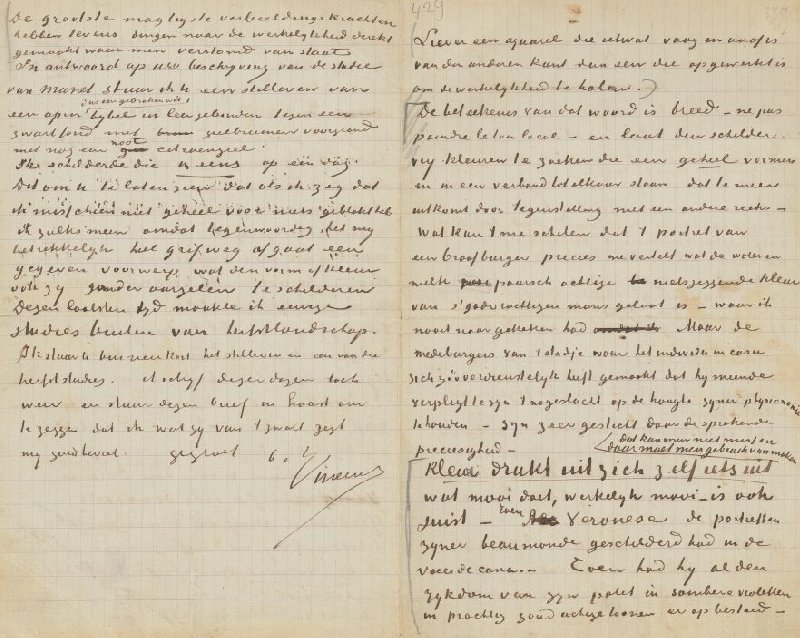 De grootste magtigste verbeeldingskrachten
hebben tevens dingen naar de werkelykheid direkt
gemaakt waar men verstomd van staat
In antwoord op uw beschryving van de studie
van Manet stuur ik U een stilleven van
dus een gebroken wit
een open bybel in leer gebonden tegen een
zwart fond met geelbruinen voorgrond
met nog een noot citroengeel.
Ik schilderde die in eens op één dag.
Dit om U te laten zien dat als ik zeg dat
ik misschien niet geheel voor niets geblokt heb
ik zulks meen omdat tegenwoordig het my
betrekkelyk heel grif weg af gaat een
gegeven voorwerp wat den vorm of kleur
ook zy zonder aarzelen te schilderen
Dezen laatsten tyd maakte ik eenige
studies buiten van herfstlandschap.
Ik stuur U binnen kort het stilleven en een van die
herfststudies. ik schryf dezer dagen toch
weer en stuur dezen brief in haast om
te zeggen dat ik wat gy van 't zwart zegt
my gegroet
Vincent
429
Liever een aquarel die ietwat vaag en onaf is
van den anderen kant dan een die opgewerkt is
om de werkelykheid te halen.)
De beteekenis van dat woord is breed – ne pas
peindre le ton local – en laat den schilder
vry kleuren te zoeken die een geheel vormen
en in een verband tot elkaar staan dat te meer
uitkomt door tegenstelling met een andere reeks –
Wat kan 't me schelen dat 't portret van
een braafburger precies me vertelt wat de water en
melk paarsch achtige nietszeggende kleur
van s' godvruchtigen mans gelaat is – waar ik
nooit naar gekeken had Maar de
medeburgers van 't stadje waar het individu in casu
zich zóó verdienstelyk heeft gemaakt dat hy meende
verpligt te zyn 't nageslacht op de hoogte zyner physionomie
te houden – zyn zeer gesticht door de sprekende
preciesigheid –
dat kan men niet missen
daar moet men gebruik van maken
Kleur drukt uit zich zelf iets uit
wat mooi doet, werkelyk mooi – is ook
juist – Toen Veronese de portretten
zyner beau monde geschilderd had in de
noces de Cana – Toen had hy al den
rykdom van zyn palet in sombere violetten
in prachtig goud achtige toonen er op besteed –